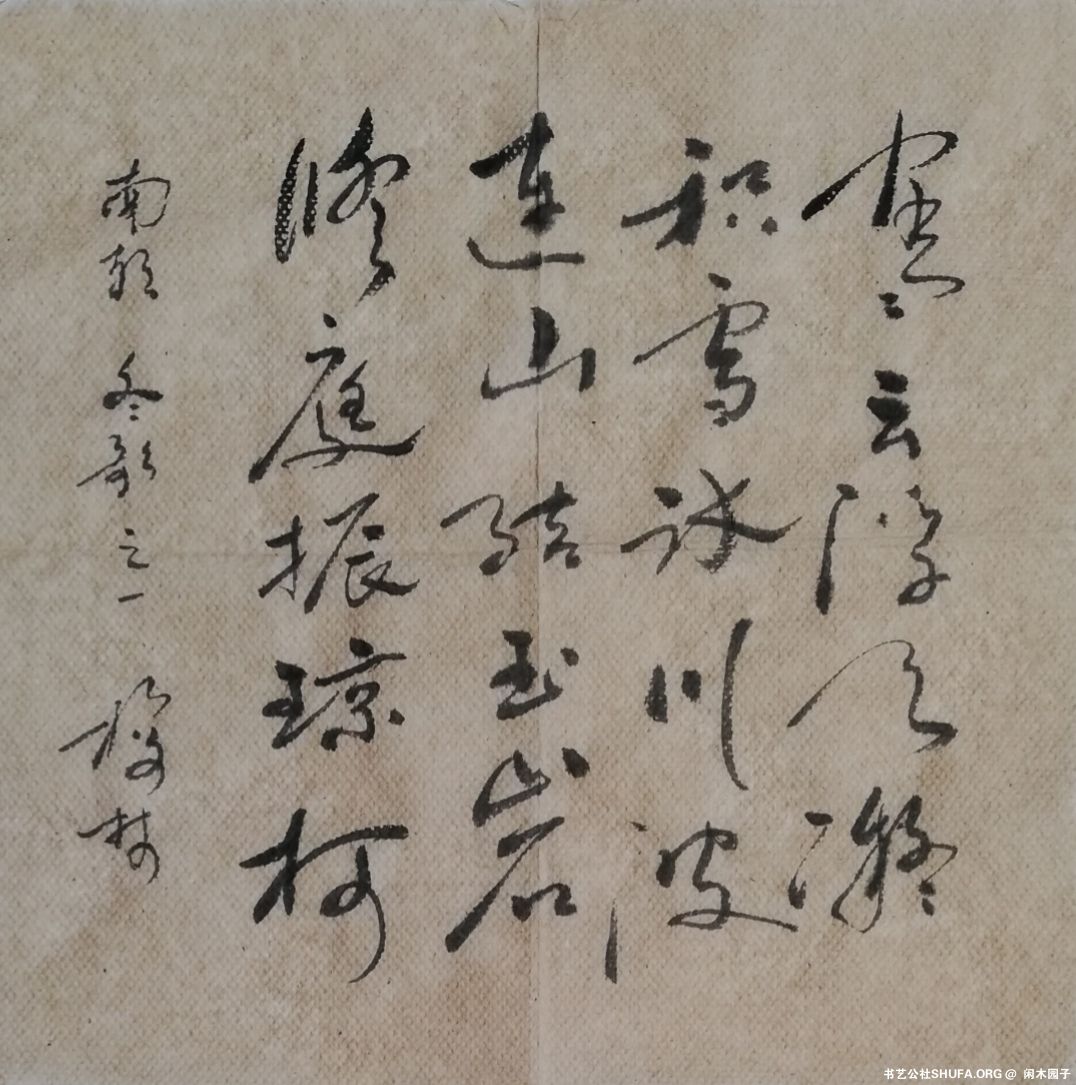 寒云浮天凝
积雪冰川波
连山结玉岩
修庭振琼柯
南朝 冬歌之一
书艺公社SHUFA.ORG @ 闲木园子